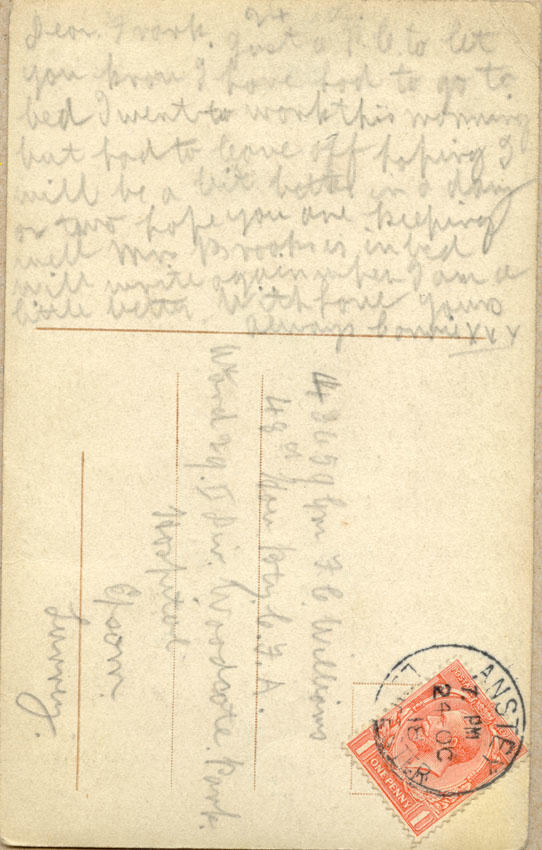 24
Dear Frank. Just a P.C. to let
you know I have had to go to
bed I went to work this morning
but had to leave off hoping I
will be a bit better in a day
or two hope you are keeping
well Mrs Brooks is in bed
will write again when I am a
little better. With love yours
always Connie xxx
43659 Gnr F. C. Williams
48th How Bty C. F. A.
Ward 29. D Div. Woodcote Park.
Hospital
Epsom.
Surrey.
ANSTEY
7. PM
24 OC
16
ONE PENNY
1 1